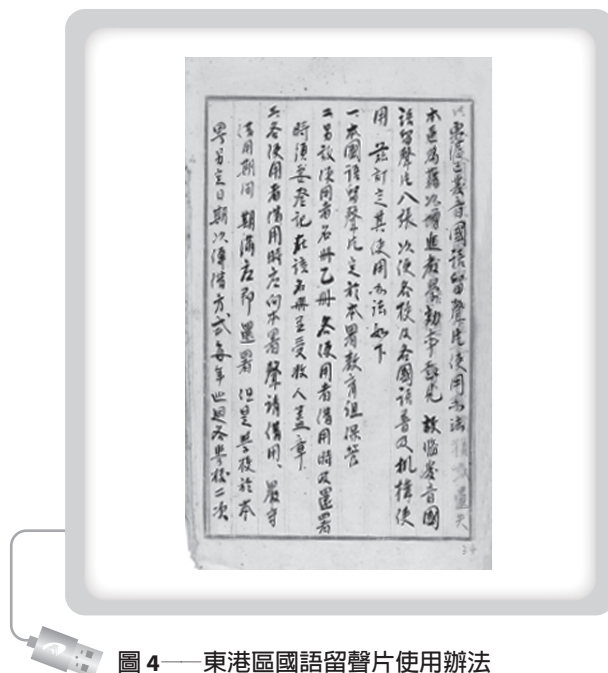 東港區發音國語留聲片使用办法
本區為藉以增進教學効率起見 故臨发音國
語留聲片八張 以便各校及各國語普及机構使
用 茲訂定其使用办法如下
一本國語留聲片定於本署教育組保管
二另設使用者名册乙册 各使用者借用時及還署
時須妥登記在該名册並受收人盖章
三各使用者借用時应向本署聲請借用、嚴守
借用期间 期满应即還署 但是學校於本
署另定日期以傳借方式每年巡迴各學校二次
34
圖 4——東港區國語留聲片使用辦法